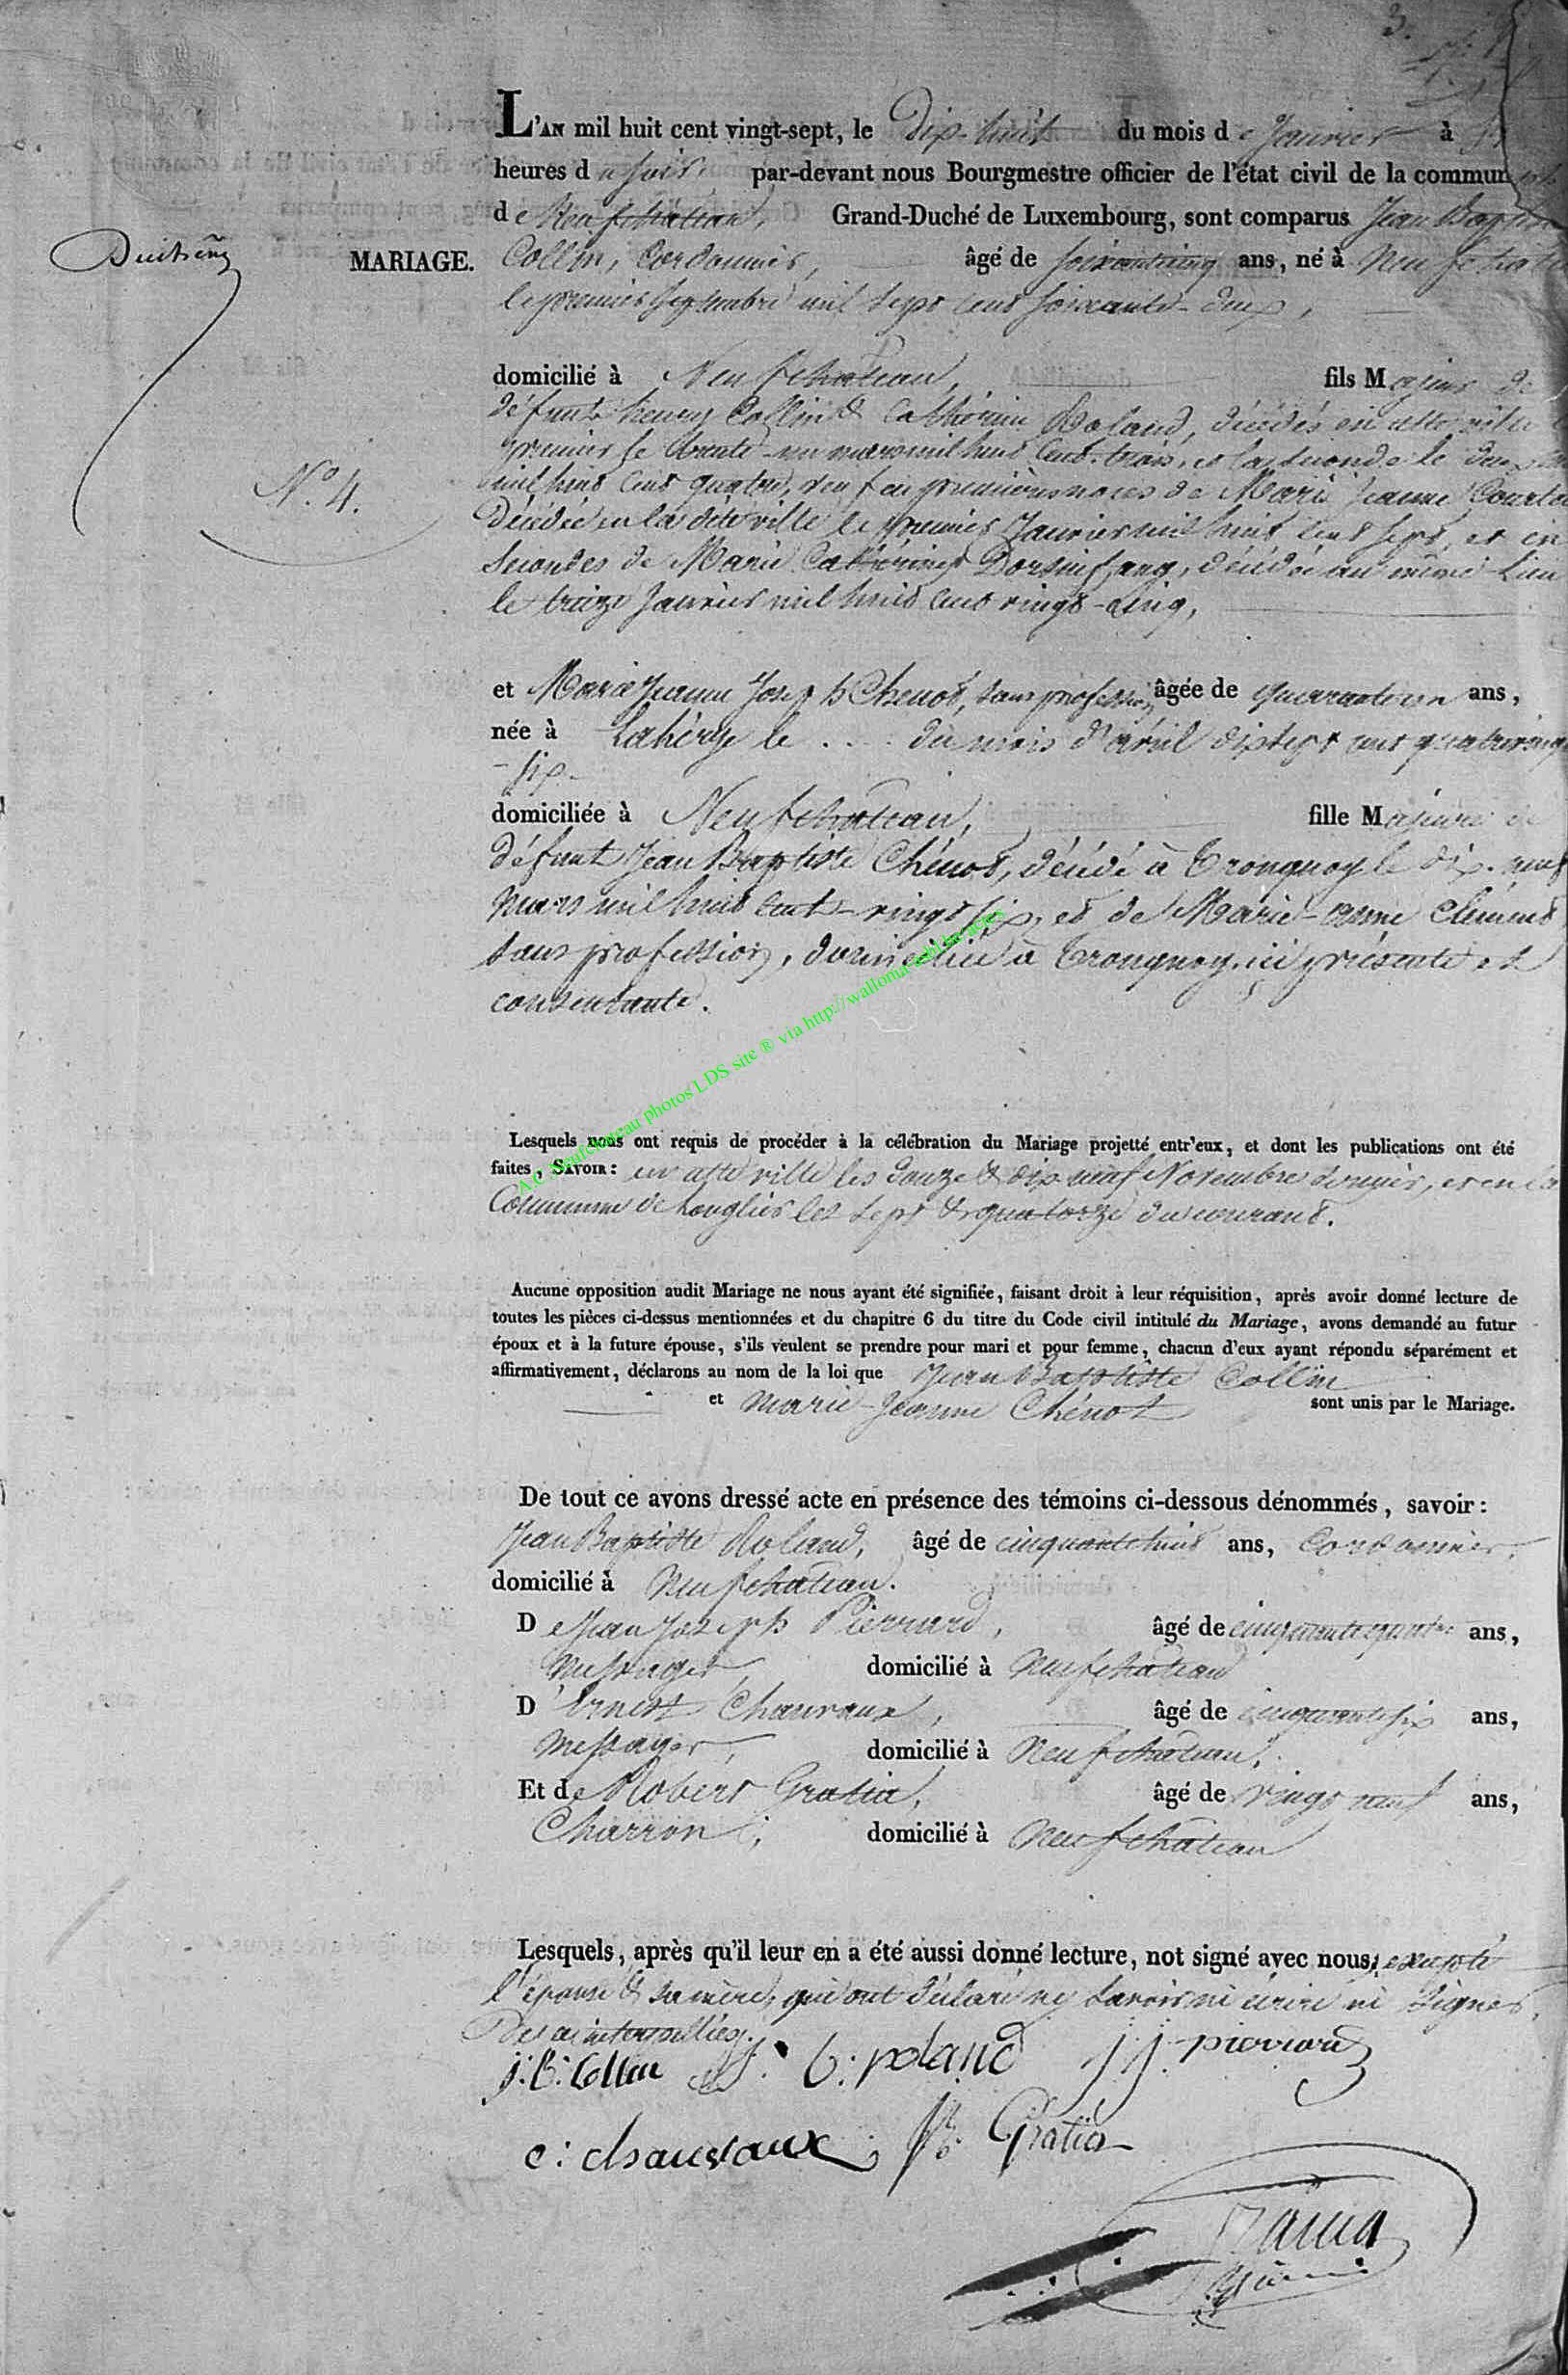 3.
L'AN mil huit cent vingt-sept, le Dix-huit du mois de Janvier à
heures du soir, par-devant nous Bourgmestre officier de l'état civil de la commun
de Neufchateau, Grand-Duché de Luxembourg, sont comparus Jean Baptiste
MARIAGE. Collin, Cordonnier, âgé de soixantecinq ans, né à Neufchateau
le premier Septembre mil sept cent soixante-deux,
domicilié à Neufchateau, fils Majeur de
N.º 4.
défunts henry Collin & Catherine Roland, décédés en cette ville le
premier le trente-un mars mil huit Cent-trois, et la seconde le deux
mil huit Cent quatre, veuf en premières noces de Marie Jeanne
Décédée en la dite ville le premier Janvier mil huit Cent sept, et en
Secondes de Marie Catherine Dorsinfang, décédée au même Lieu
le treize Janvier mil huit cent vingt-cinq,
et Marie Jeanne Joseph Chenot, sans profession, âgée de quarante un ans,
née à Lahérie le .... du mois d'avril dixsept cent quatrevingt
-six-
domiciliée à Neufchateau, fille Majeure de
défunt Jean Baptiste Chénot, décédé à Tronquoy le dix-neuf
Mars mil huit Cent-vingt six, et de Marie-anne Clement
sans profession, domiciliée à Tronquoy, ici présente et
consentante.
A.C. Neufchateau photos LDS site ® via http://wallonia
Lesquels nous ont requis de procéder à la célébration du Mariage projetté entr'eux, et dont les publications ont été
faites, SAVOIR : en cette ville les douze & dix-neuf Novembre dernier, et en la
Commune de Longlier les sept & quatorze du courant.
Aucune opposition audit Mariage ne nous ayant été signifiée, faisant droit à leur réquisition, après avoir donné lecture de
toutes les pièces ci-dessus mentionnées et du chapitre 6 du titre du Code civil intitulé du Mariage, avons demandé au futur
époux et à la future épouse, s'ils veulent se prendre pour mari et pour femme, chacun d'eux ayant répondu séparément et
affirmativement, déclarons au nom de la loi que Jean Baptiste Collin
et Marie-Jeanne Chénot sont unis par le Mariage.
De tout ce avons dressé acte en présence des témoins ci-dessous dénommés, savoir :
Jean Baptiste Roland, âgé de cinquantehuit ans, Cordonnier,
domicilié à Neufchateau.
De Jean Joseph Pierrard, âgé de cinquantequatre ans,
Messager, domicilié à Neufchateau
D'Ernest Chauvaux, âgé de cinquantesix ans,
Messager, domicilié à Neufchateau,
Et de Robert Gratia, âgé de vingt neuf ans,
Charron, domicilié à Neufchateau
Lesquels, après qu'il leur en a été aussi donné lecture, not signé avec nous, excepté
l'épouse & sa mère, qui ont déclaré ne savoir ni écrire ni signer,
De ce interpellées.
j: B: Collin J: b: roland j j. pierrard
e: chauvaux R: Gratia